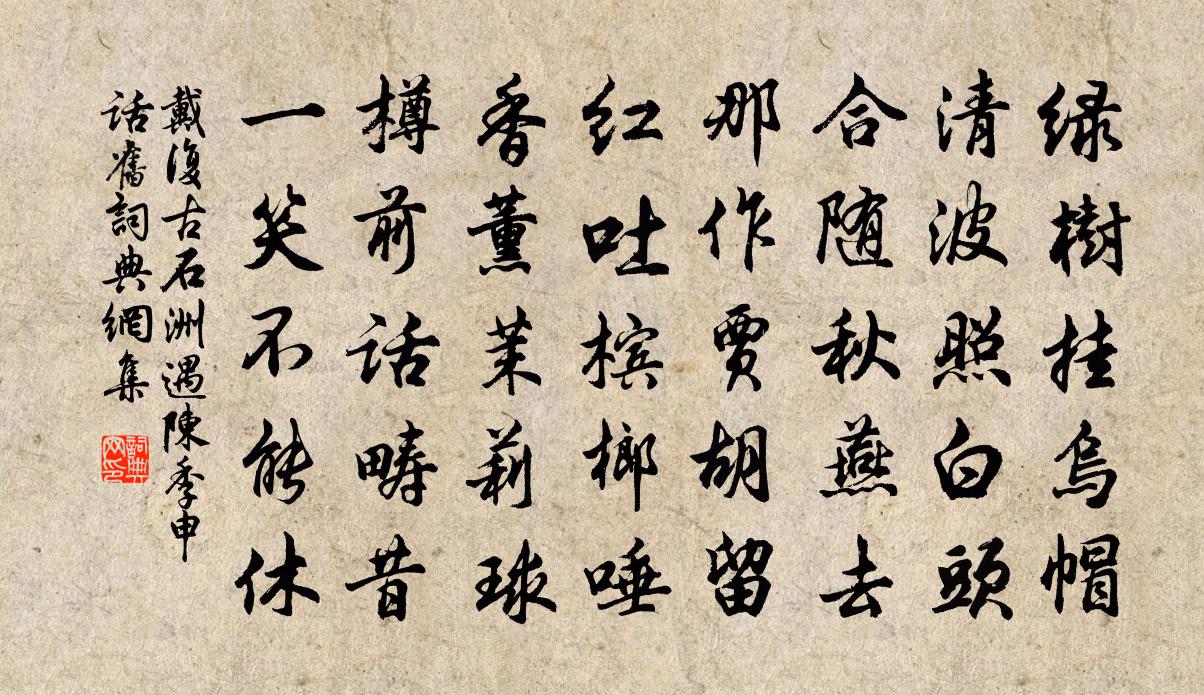 绿樹挂烏帽
清波照白頭
合随秋燕去
那作賈胡留
红吐槟榔唾
香薰茉莉球
樽前話疇昔
一笑不能休
戴復古石洲遇陳季申
話舊詞典網集
詞典
网印